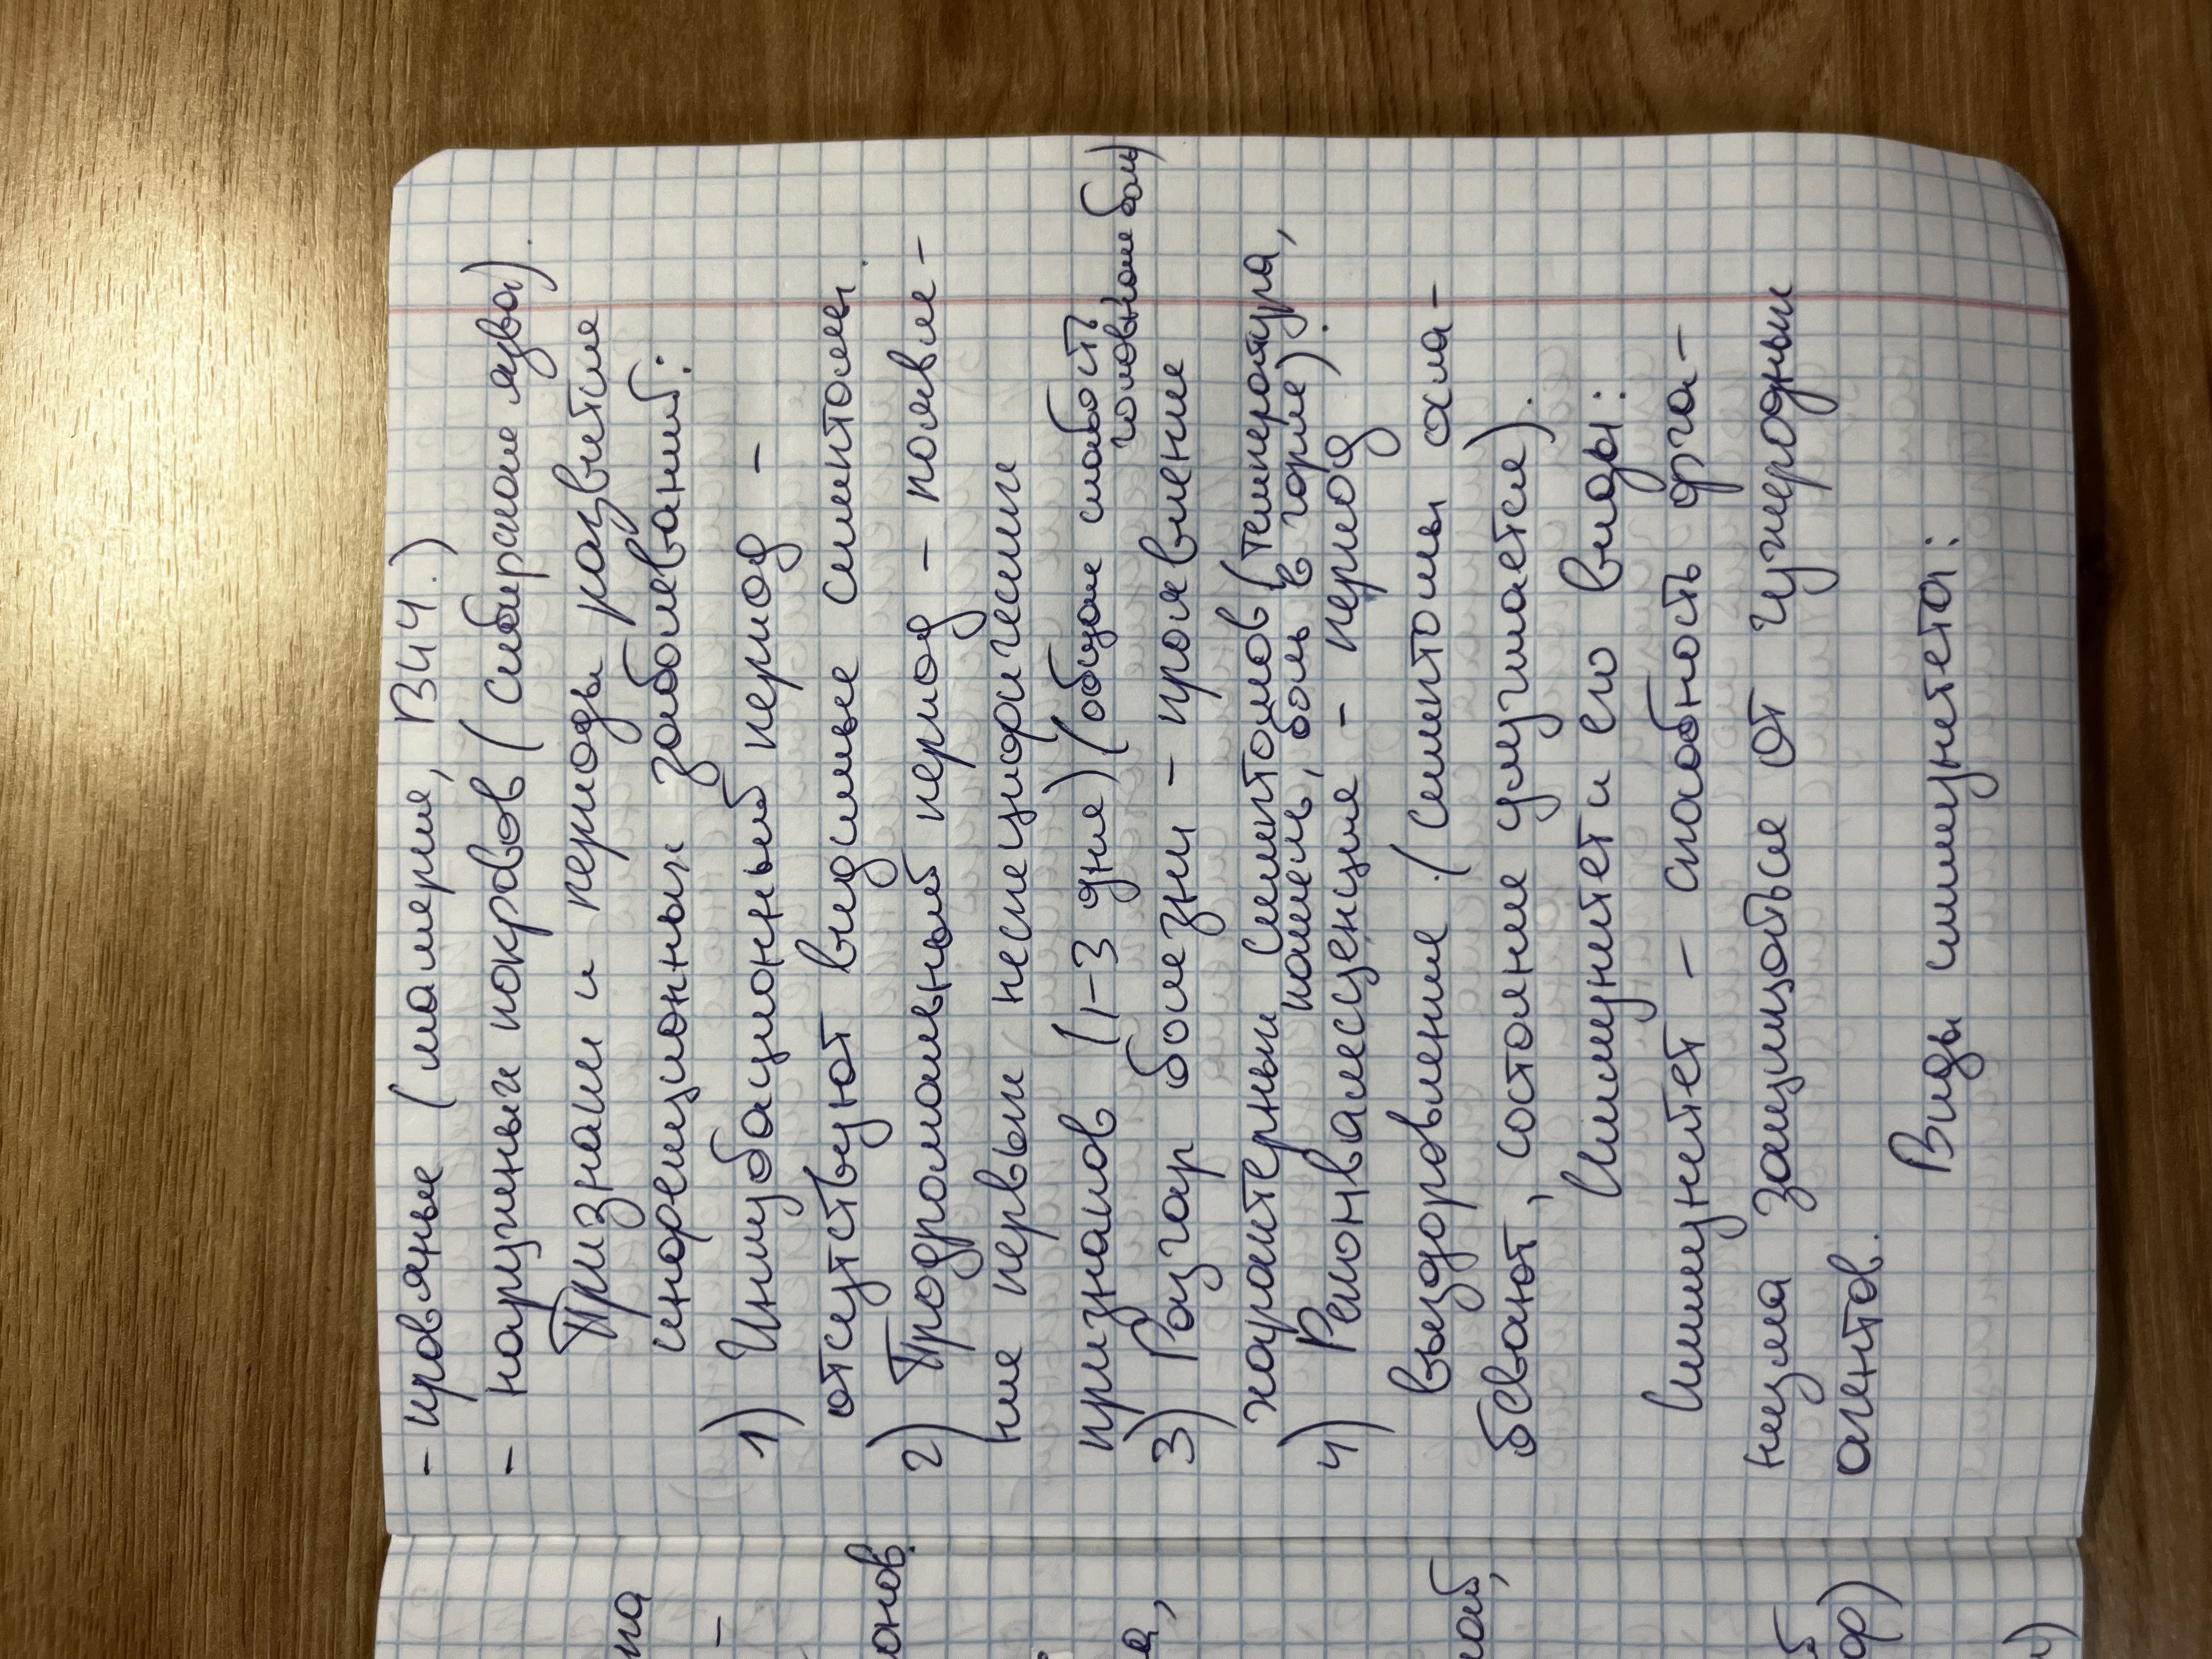 - кровяные (малярия, ВИЧ.)
- наружных покровов (сибирская язва).
Признаки и периоды развития
инфекционных заболеваний:
1) Инкубационный период -
отсутствуют видимые симптомы.
2) Продромальный период - появле-
ние первых неспецифических
признаков (1-3 дня) (общая слабость
головная боль)
3) Разгар болезни - проявление
характерных симптомов (температура,
кашель, боль в горле).
4) Реконвалесценция - период
выздоровления (симптомы осла-
бевают, состояние улучшается).
Иммунитет и его виды:
Иммунитет - способность орга-
низма защищаться от чужеродных
агентов.
Виды иммунитета:
ка
-
онов.
я,
ной,
й
ор)
и)